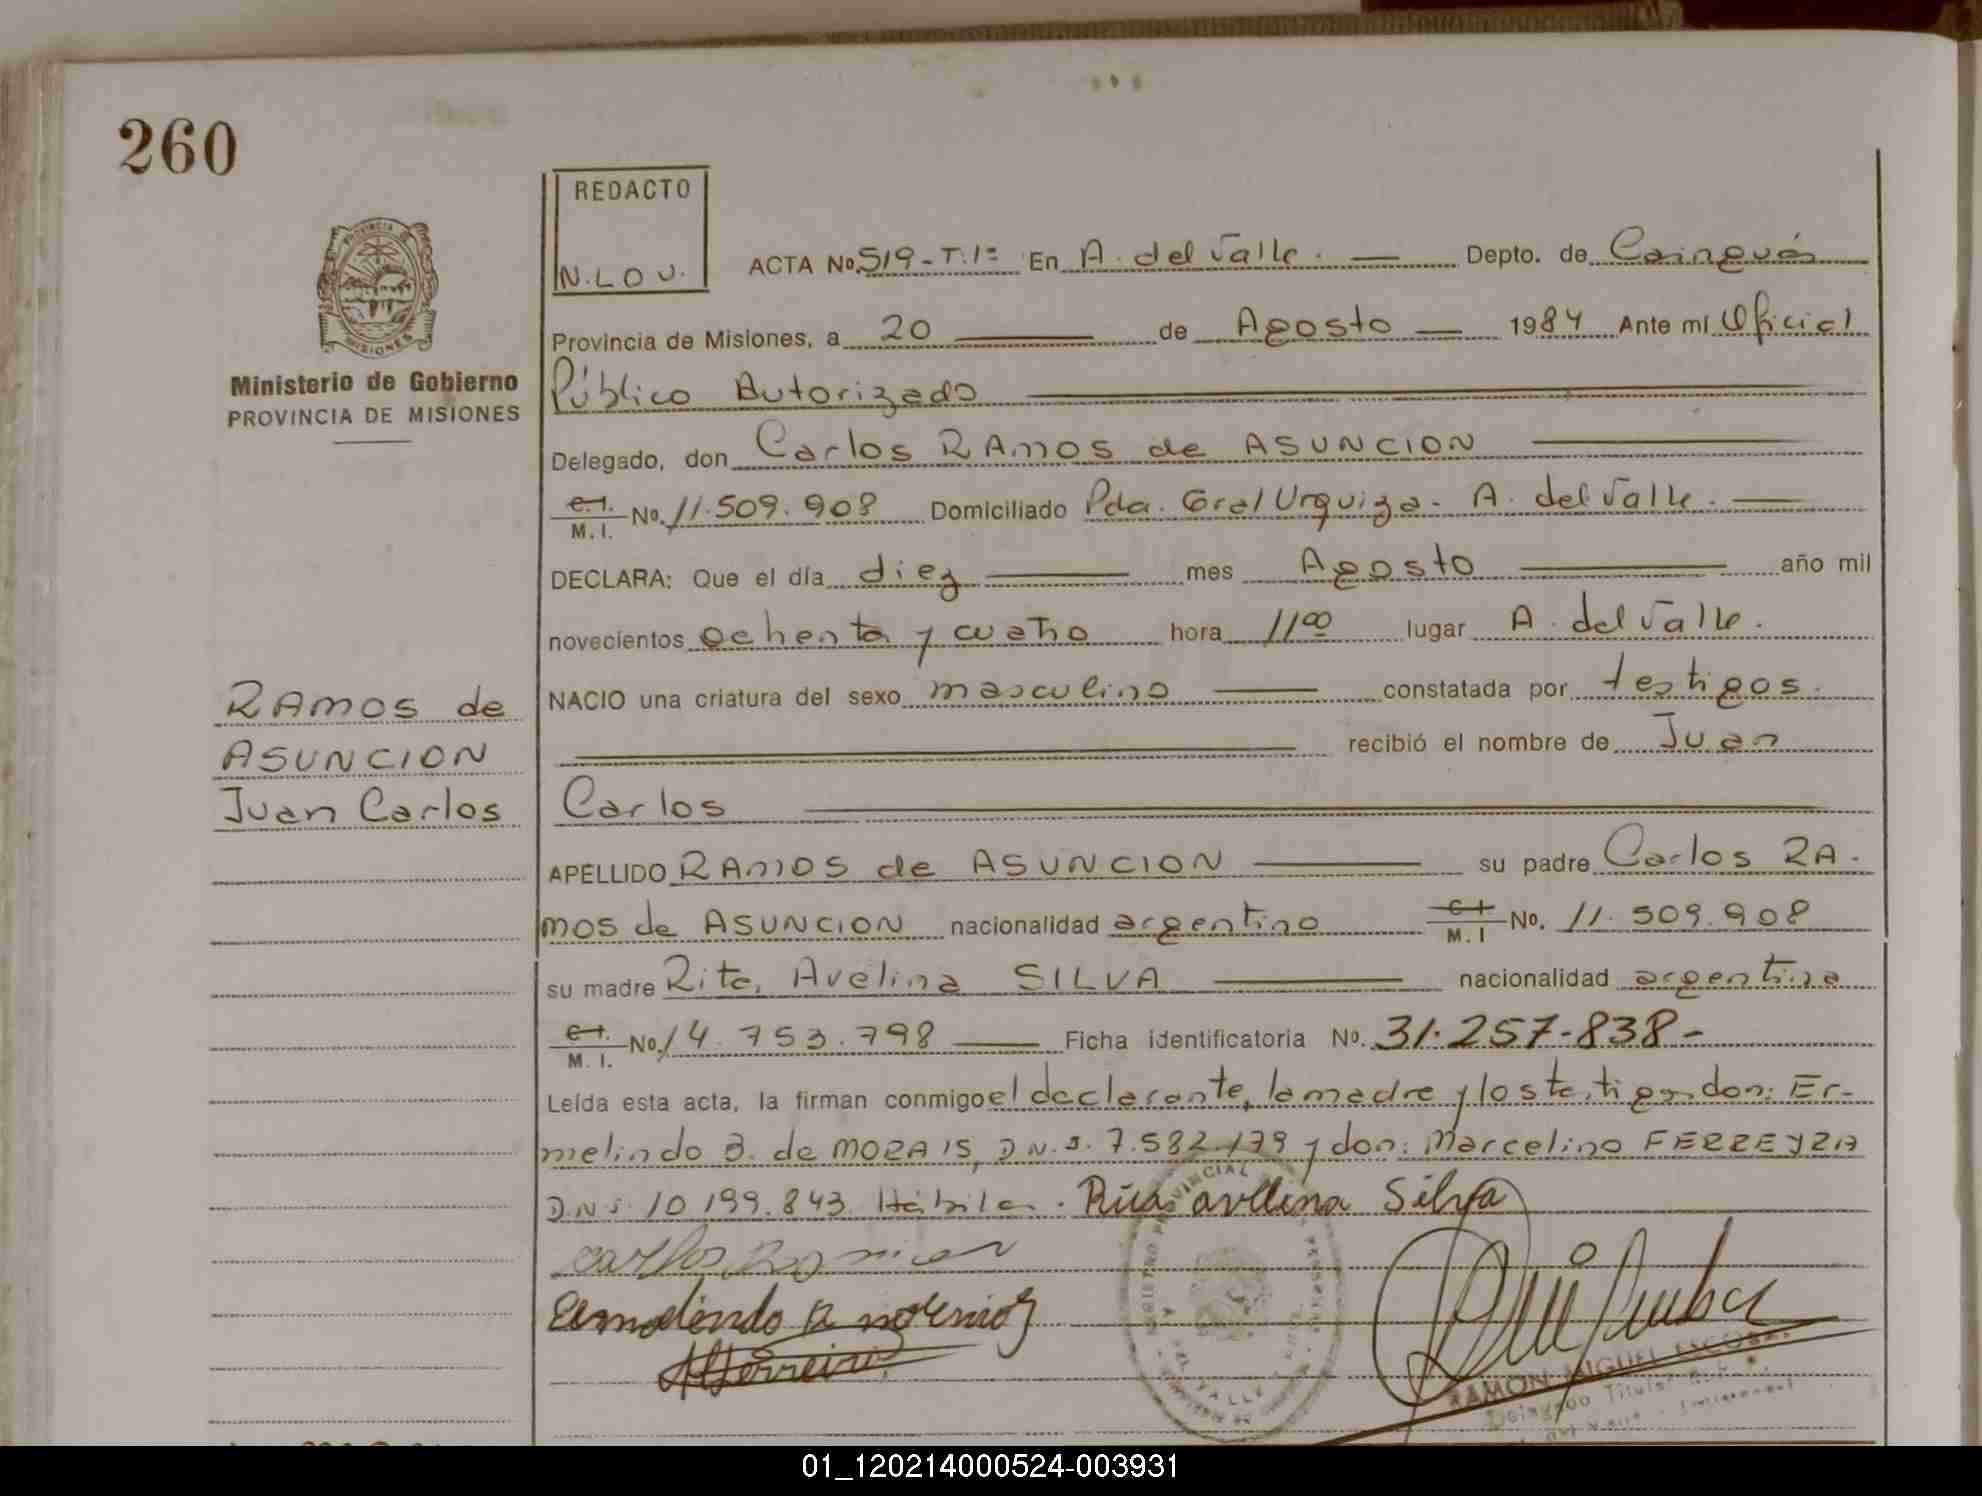 260
REDACTO
N.L.O.V.
ACTA No. 519-T.1º En A. del Valle. Depto. de Cainguás
Provincia de Misiones, a 20 de Agosto 1984 Ante mí Oficial
Ministerio de Gobierno
PROVINCIA DE MISIONES
Público Autorizado
Delegado, don Carlos RAMOS de ASUNCION
C.I. M.I. No. 11.509.908 Domiciliado Pda. Gral Urquiza - A. del Valle.
DECLARA: Que el día diez mes Agosto año mil
novecientos ochenta y cuatro hora 11oo lugar A. del Valle.
NACIO una criatura del sexo masculino constatada por testigos.
recibió el nombre de Juan
RAMOS de
ASUNCION
Juan Carlos
Carlos
APELLIDO RAMOS de ASUNCION su padre Carlos RA-
MOS de ASUNCION nacionalidad argentino C.I. M.I No. 11.509.908
su madre Rita Avelina SILVA nacionalidad argentina
C.I. M.I. No. 14.753.798 Ficha identificatoria No. 31.257-838-
Leída esta acta, la firman conmigo el declarante, la madre y los testigos don: Er-
melindo B. de MORAIS, D.N.I. 7.582.179 y don: Marcelino FERREYRA
D.N.I. 10.199.843 Hábiles. Rita avelina Silva
Carlos Ramos
RAMON MIGUEL ESCOBAR
Delegado Titular
01_120214000524-003931